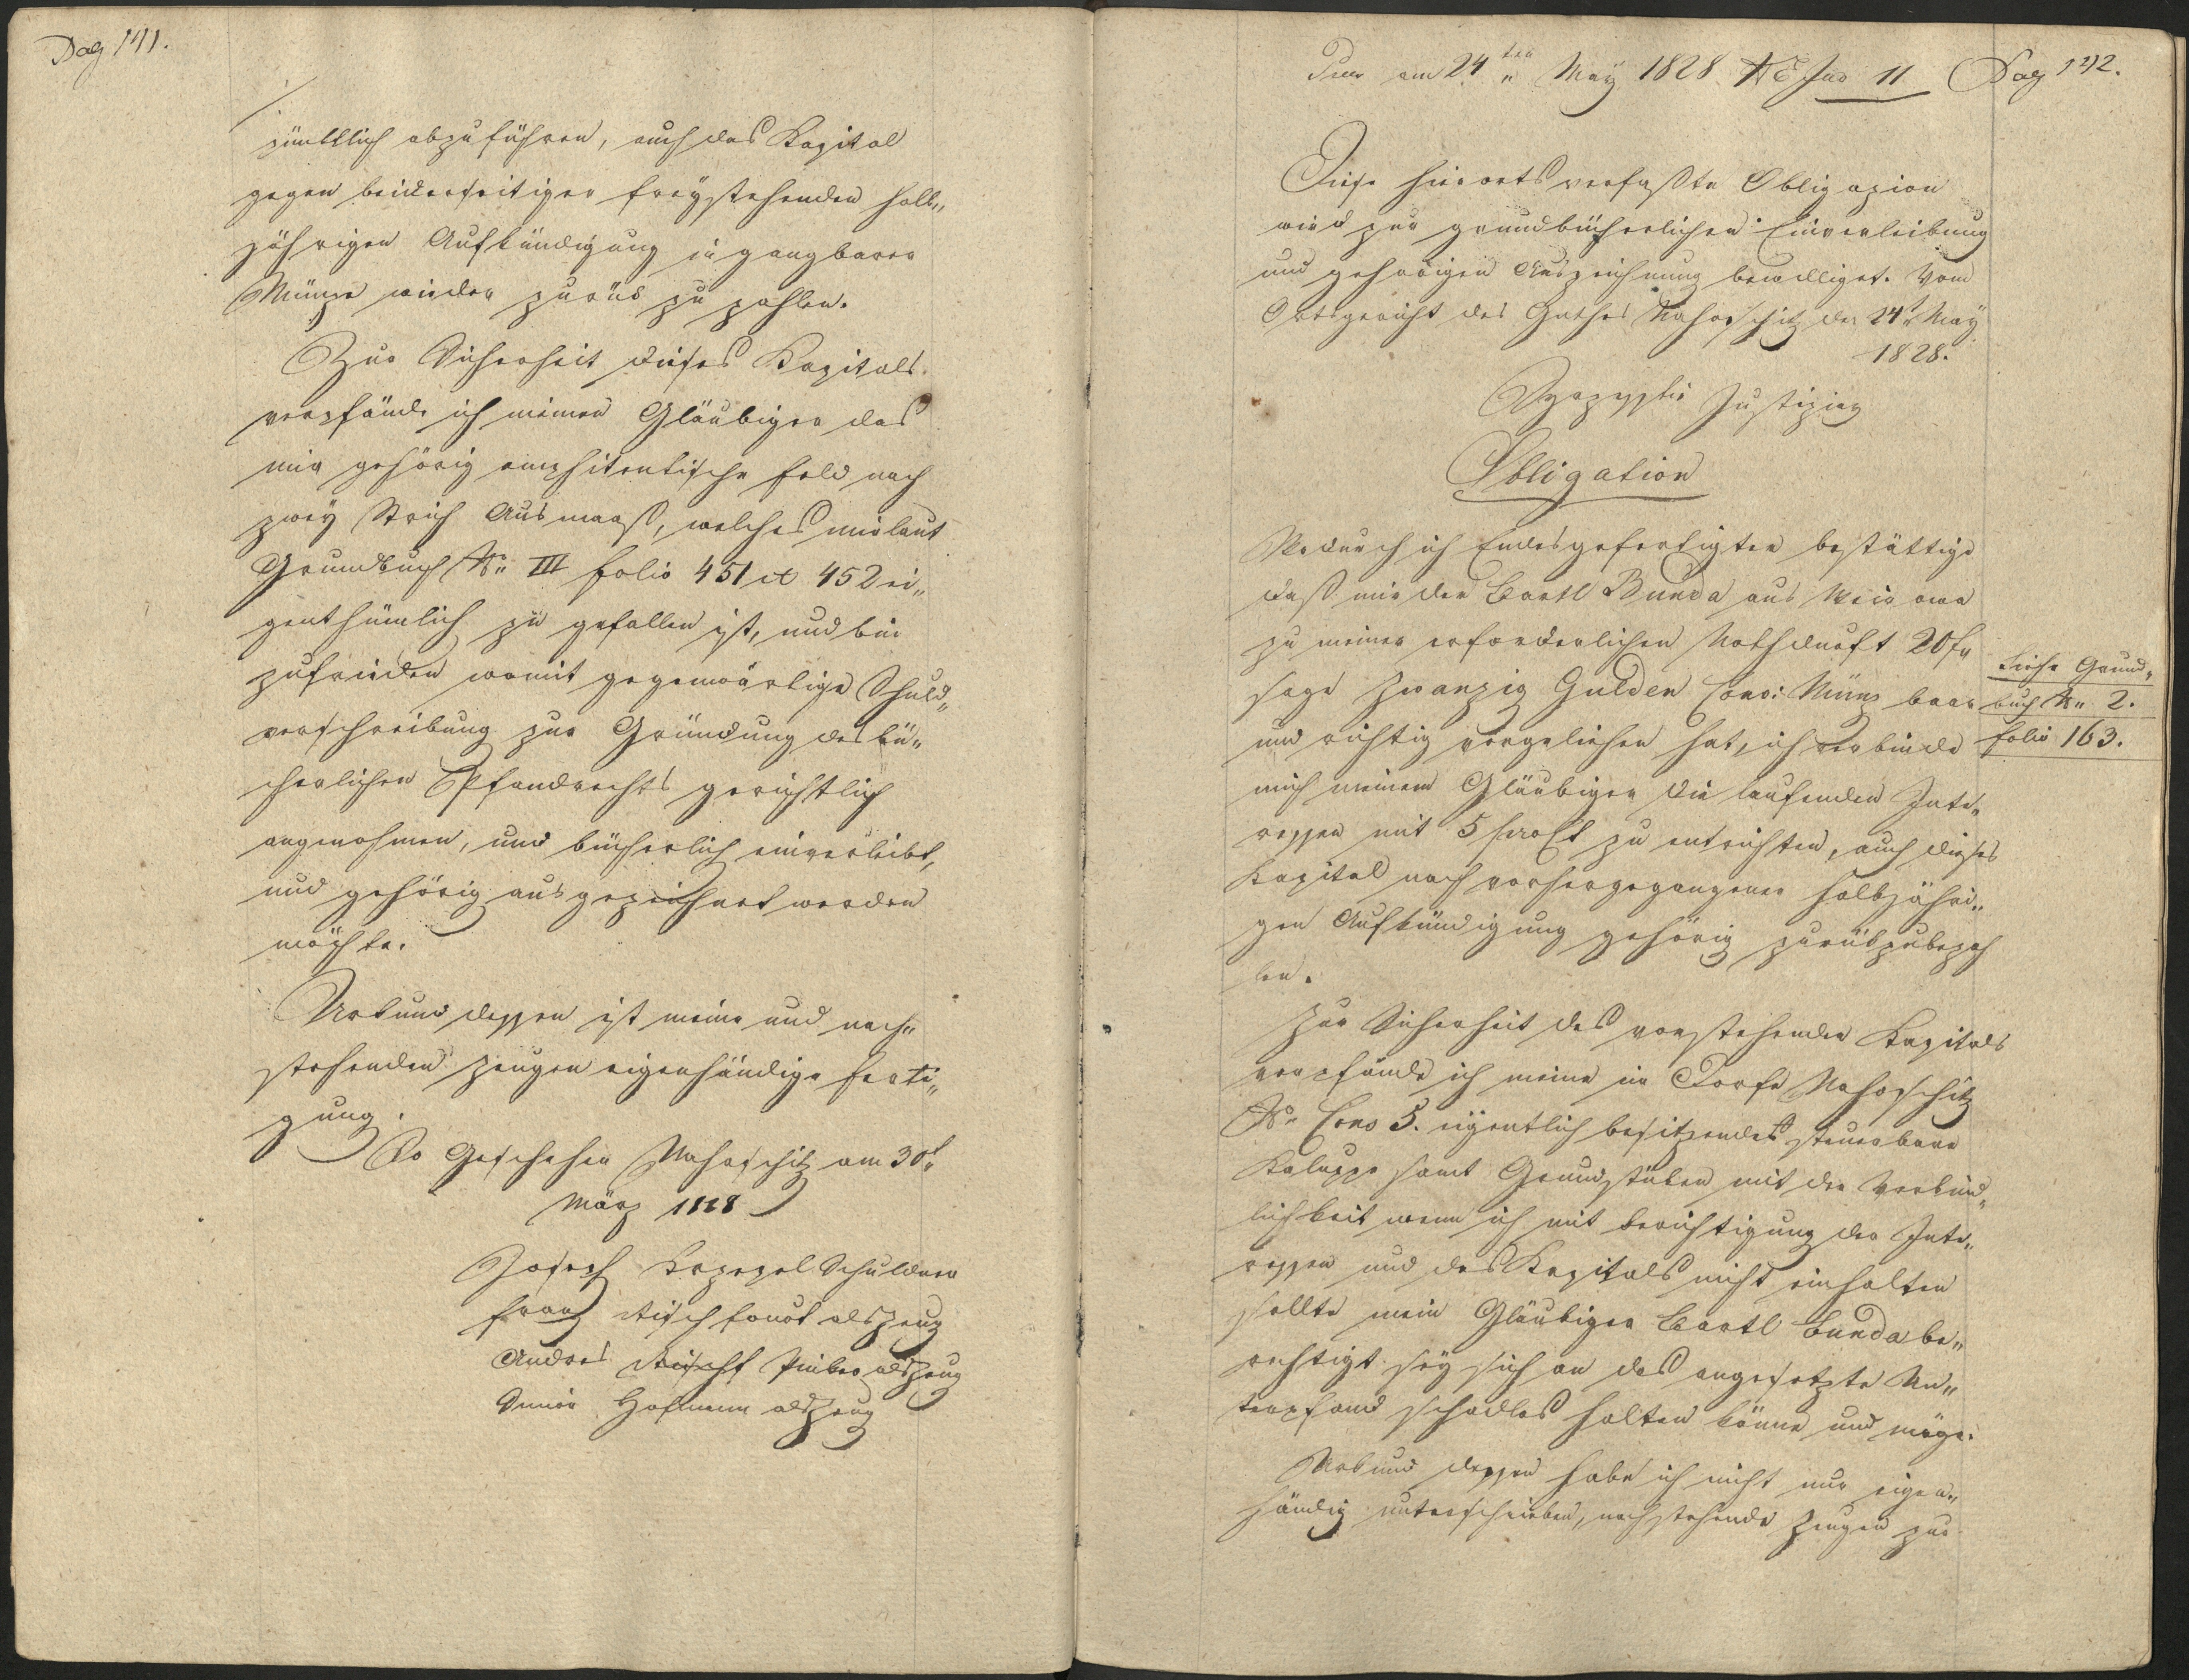 Pag 141.
pünktlich abzuführen, auch das Kapital
gegen beiderseitiger freystehenden halb„
jährigen Aufkündigung in gangbarer
Münze wieder zurük zu zahlen.
Zur Sicherheit dieses Kapitals
verpfände ich meinen Gläubiger das
mir gehörig emphiteutische Feld nach
zwey Strich Ausmaaß, welches mir laut
Grundbuch Nro III folio 451 et 452 ei„
genthümlich zu gefallen ist, und bin
zufrieden womit gegenwärtige Schuld„
verschreibung zur Gründung des bü„
cherlichen Pfandrechts gerichtlich
angenohmen, und bücherlich einverleibt,
und gehörig ausgezeichnet werden
möchte.
Urkund dessen ist meine und nach„
stehenden Zeugen eigenhändige Ferti„
gung.
So Geschehen Nahoschitz am 30t
März 1828
Joseph Schuldner
Franz als Zeug
Andres als Zeug
Hofmann als Zeug
am 24ten May 1828 11 Pag 142.
Diese hierorts verfaßte Obligazion
wird zur grundbücherlichen Einverleibung
und gehörigen Auszeichnung bewilliget. Vom
Ortsgericht des Guthes Nahoschitz den 24t May
1828.
Justiziar
Obligation
Wodurch ich Endesgefertigter bestättige
daß mir der Bartl Bunda aus
zu meiner erforderlichen Nothdurft 20 fr
sage Zwanzig Gulden Conv: Münz baar
und richtig vorgeliehen hat, ich verbinde
mich meinem Gläubiger die laufenden Inte„
ressen mit 5 proCt zu entrichten, auch dieses
Kapital nach vorhergegangener halbjähri„
gen Aufkündigung gehörig zurükzubezah
len.
Siehe Grund„
buch Nro 2.
folio 163.
Zur Sicherheit des vorstehenden Kapitals
verpfände ich meine im Dorfe Nahoschitz
Nro Cons 5. eigentlich besitzendes steuerbare
Kaluppe samt Grundstüken mit der Verbind„
lichkeit wenn ich mit Berichtigung der Inte„
ressen und des Kapitals nicht einhalten
sollte mein Gläubiger Bartl Bunda be„
rechtigt sey sich an das angesetzte Un„
terpfand schadlos halten könne und möge.
Urkund dessen habe ich nicht nur eigen„
händig unterschrieben, nachstehende Zeugen zur